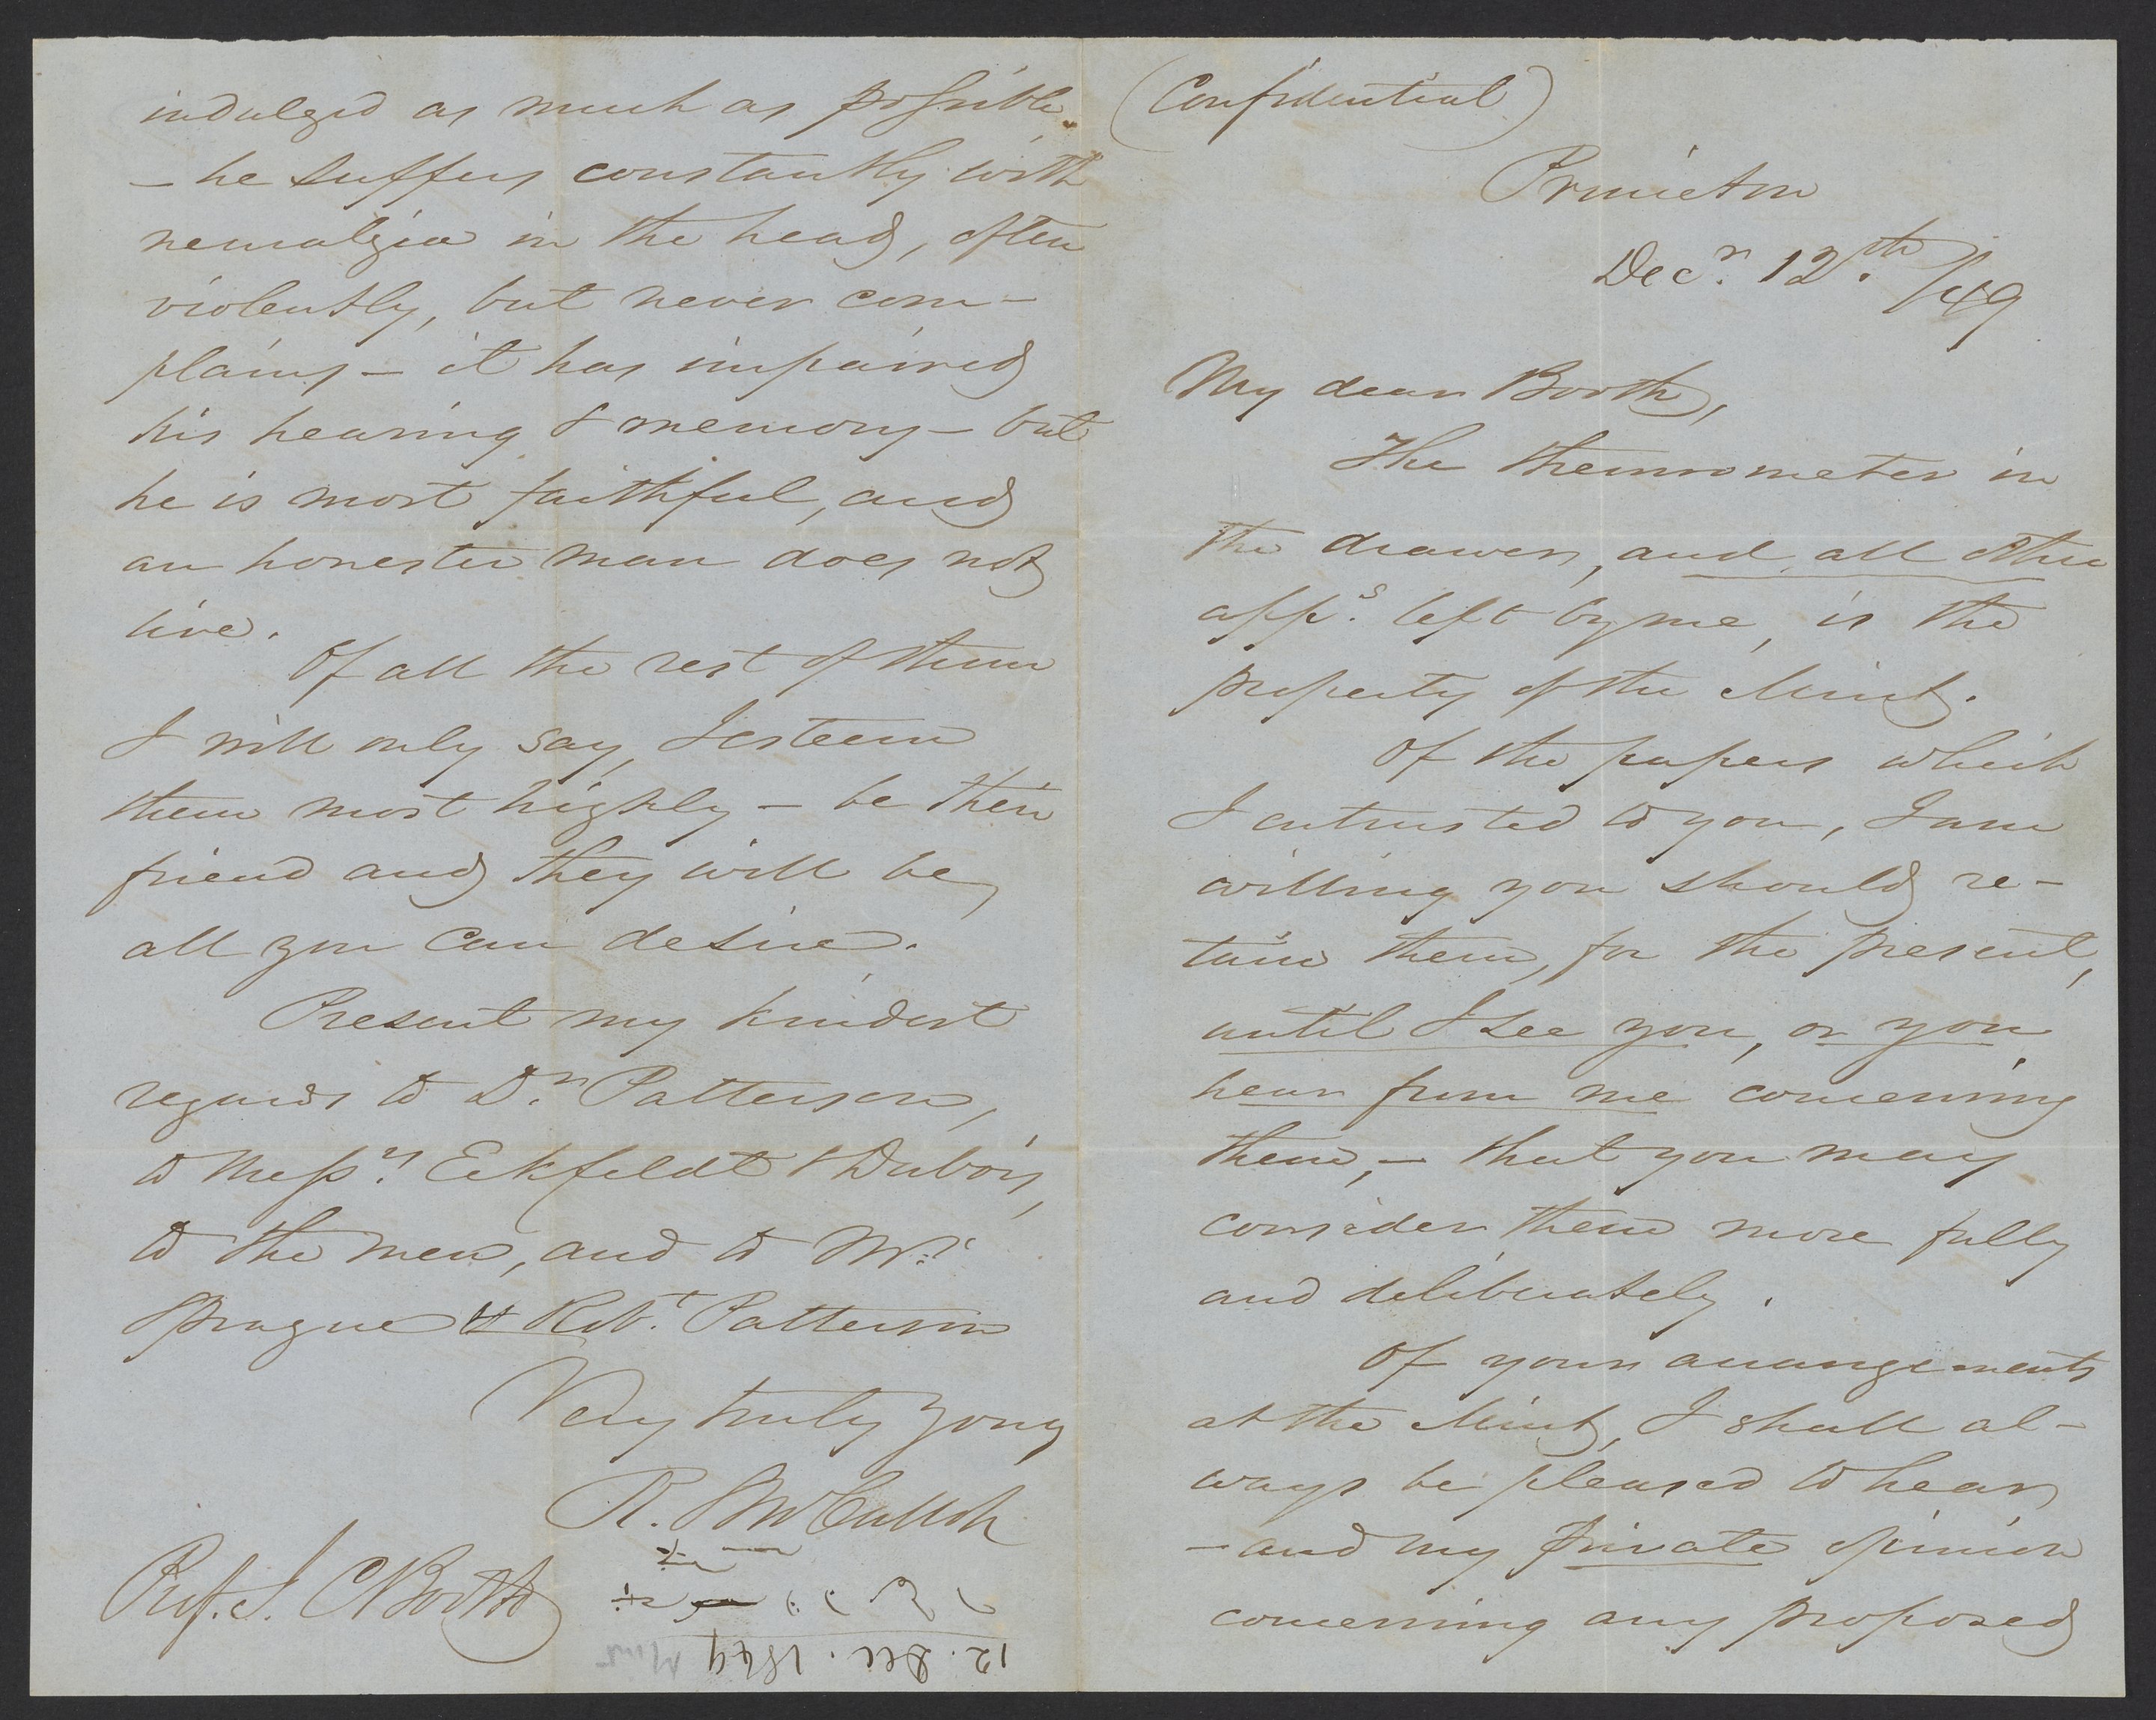 (Confidential)
Princeton
Decr. 12th./49
My dear Booth,
The thermometer in
the drawer, and all other
apps. left by me, is the
property of the Mint.
Of the papers which
I entrusted to you, I am
willing you should re-
tain them, for the present,
until I see you, or you
hear from me concerning
them, - that you may
consider them more fully
and deliberately.
Of your arrangements
at the Mint, I shall al-
ways be pleased to hear
- and my private opinion
concerning any proposed
indulged as much as possible.
- he suffers constantly with
neuralgia in the head, often
violently, but never com-
plains - it has impaired
his hearing & memory - but
he is most faithful, and
an honester man does not
live.
Of all the rest of them
I will only say, I esteem
them most highly - be their
friend and they will be,
all you can desire.
Present my kindest
regards to Dr. Patterson,
to Messrs. Eckfeldt & Dubois,
to the men, and to Mr.
Sprague & Robt. Patterson
Very truly yours
R. S. McCulloh
Prof. J. C. Booth
12. Dec. 1849 Mint